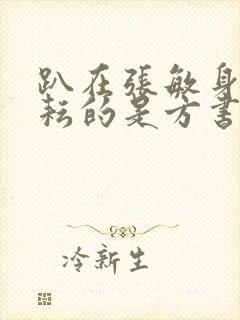 趴在張敏身
耘的是方書
冷新生